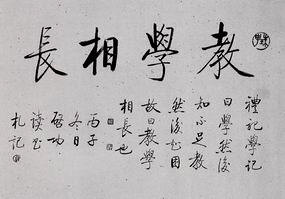 教學相長
禮記學記
曰學然後
知不足教
然後知困
故曰教學
相長也
丙子
冬日
啓功
札記